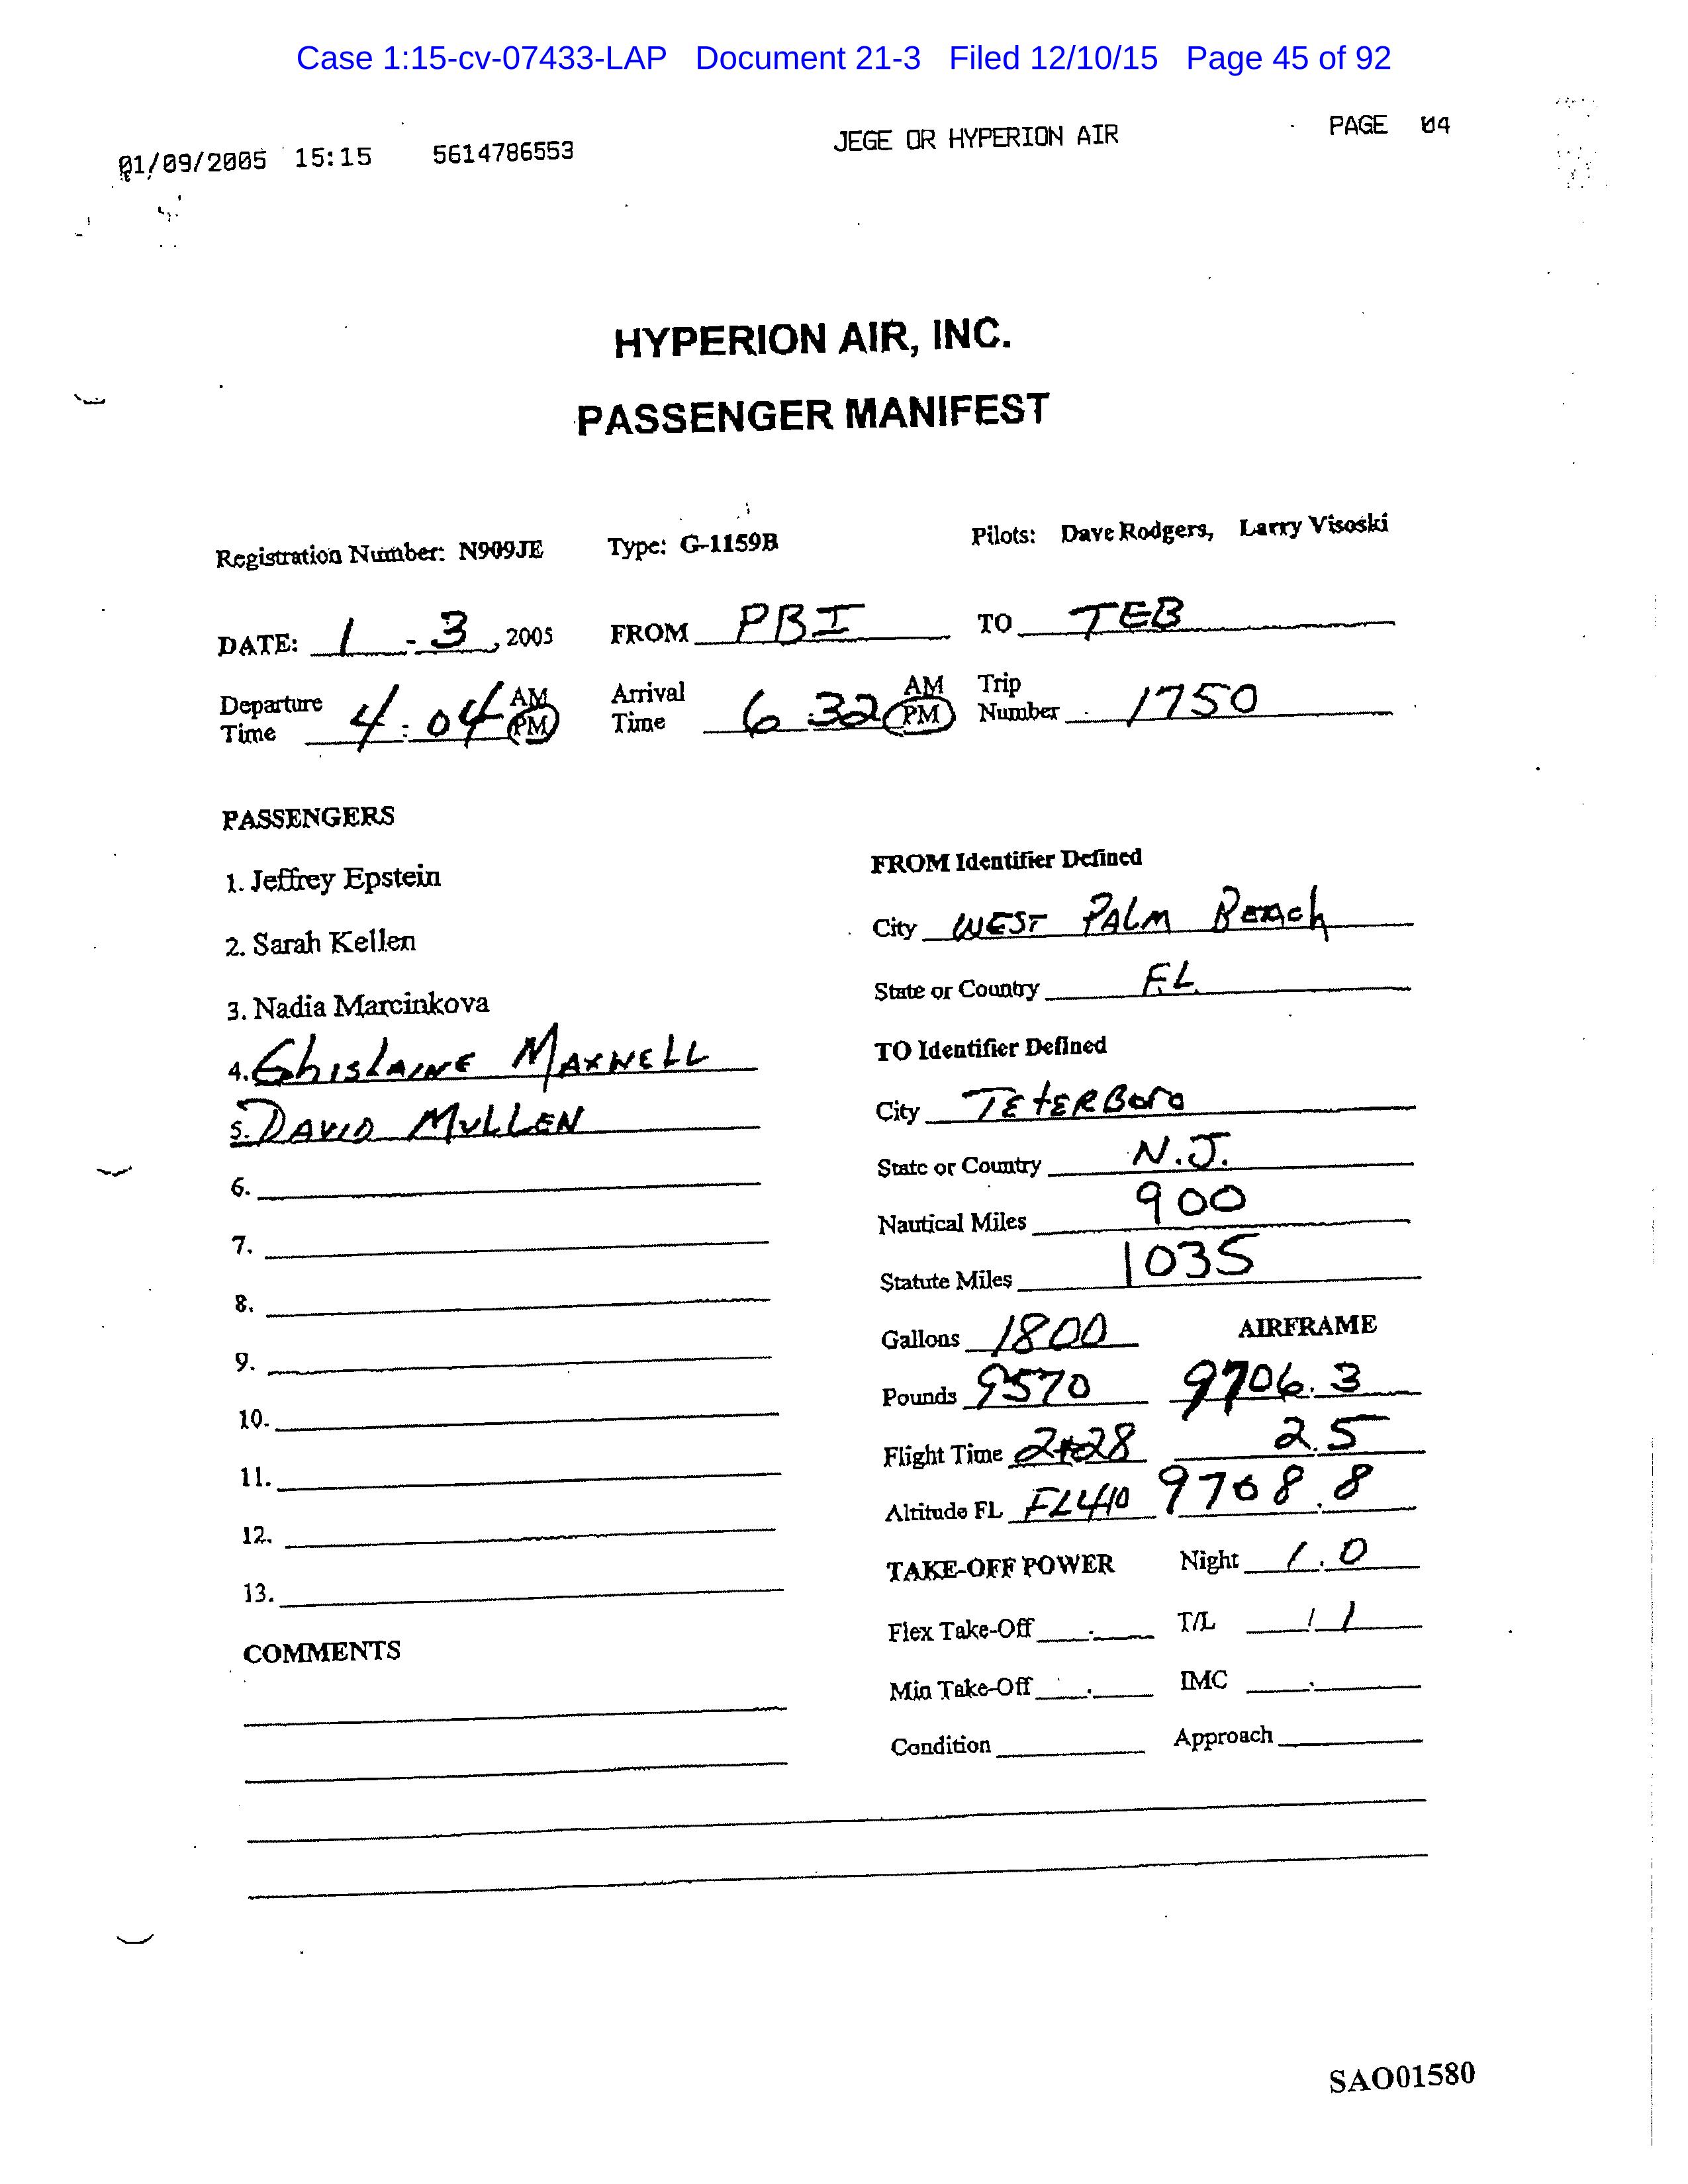 Case 1:15-cv-07433-LAP Document 21-3 Filed 12/10/15 Page 45 of 92
01/09/2005 15:15 5614786553 JEGE OR HYPERION AIR PAGE 04
HYPERION AIR, INC.
PASSENGER MANIFEST
Registration Number: N909JE Type: G-1159B Pilots: Dave Rodgers, Larry Visoski
DATE: 1 - 3, 2005 FROM PBI TO TEB
Departure Time 4:04 AM PM Arrival Time 6:32 AM PM Trip Number 1750
PASSENGERS
1. Jeffrey Epstein
2. Sarah Kellen
3. Nadia Marcinkova
4. Ghislaine Maxwell
5. David Mullen
6.
7.
8.
9.
10.
11.
12.
13.
COMMENTS
FROM Identifier Defined
City West Palm Beach
State or Country FL
TO Identifier Defined
City Teterboro
State or Country N.J.
Nautical Miles 900
Statute Miles 1035
Gallons 1800 AIRFRAME
Pounds 9570 9706.3
Flight Time 2+28 2.5
Altitude FL FL410 9708.8
TAKE-OFF POWER Night 1.0
Flex Take-Off . T/L 1/1
Min Take-Off . IMC .
Condition Approach
SAO01580